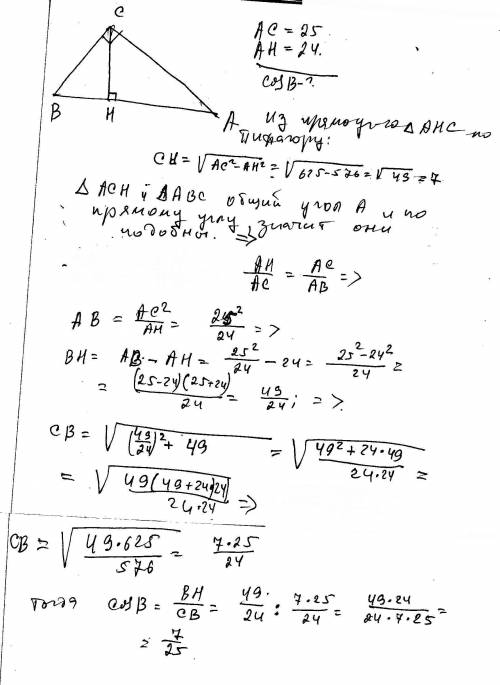 C
AC = 25
AH = 24.
cosB - ?
B H A
Из прямоуг-о △ AHC по
Пифагору:
CH = √AC² - AH² = √625 - 576 = √49 = 7
△ ACH и △ABC общий угол A и по
прямому углу, значит они
подобны. =>
AH/AC = AC/AB =>
AB = AC²/AH = 25²/24 =>
BH = AB - AH = 25²/24 - 24 = 25² - 24²/24 =
= (25-24)(25+24)/24 = 49/24; =>
CB = √(49/24)² + 49 = √49² + 24·49/24·24 =
= √49(49+24·24)/24·24 =>
CB = √49·625/576 = 7·25/24
тогда cosB = BH/CB = 49/24 : 7·25/24 = 49·24/24·7·25 =
= 7/25